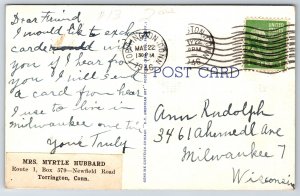 Dear Friend
I would like to exchange
cards with
you if I hear from
you I will send
a card from here
I use to live in
milwaukee
Yours Truly
MRS. MYRTLE HUBBARD
Route 1, Box 579—Newfield Road
Torrington, Conn.
TORRINGTON, CONN.
MAY 22
1 30 PM
1946
POST CARD
Ann Rudolph
3461 a Humboldt Ave
Milwaukee 7
Wisconsin